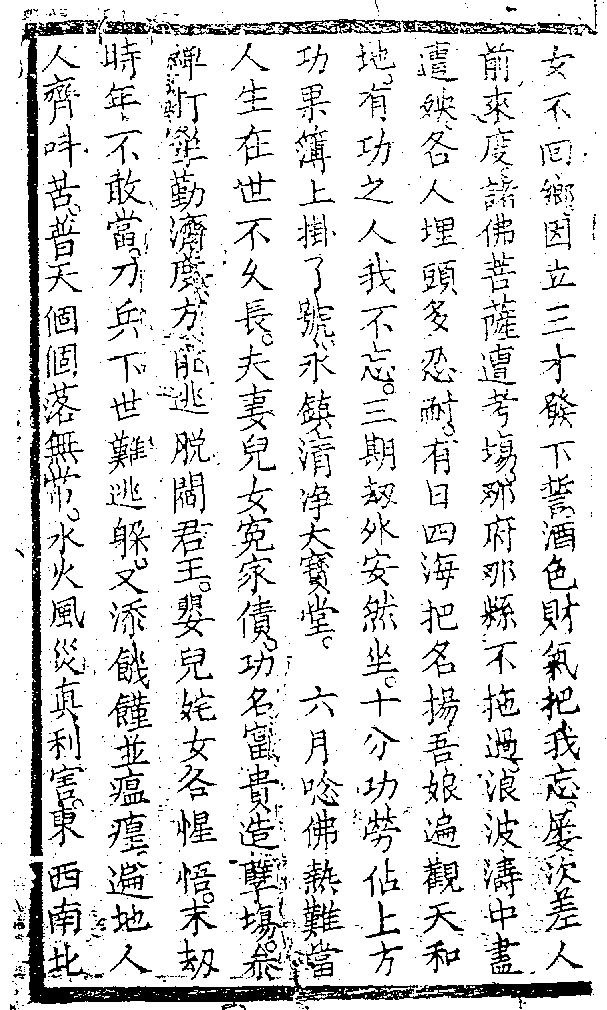 女不回鄉因立三才發下誓酒色財氣把我忘。屡次差人
前來度諸佛菩薩遭考塲。那府那縣不拖過。浪波濤中盡
遭殃。各人埋頭多忍耐。有日四海把名揚。吾娘遍觀天和
地。有功之人我不忘。三期刼外安然坐。十分功勞佔上方
功果簿上掛了號。永鎮清净大寳堂。 六月唸佛熱難當
人生在世不久長。夫妻兒女冤家債。功名富貴造孽塲。叅
禪打坐勤濟度。方能逃脱閻君王。嬰兒姹女各惺悟。末刼
時年不敢當。刀兵下世難逃躲。又添饑饉並瘟㾮。遍地人
人齊呌苦。普天個個落無常。水火風災真利害。東西南北